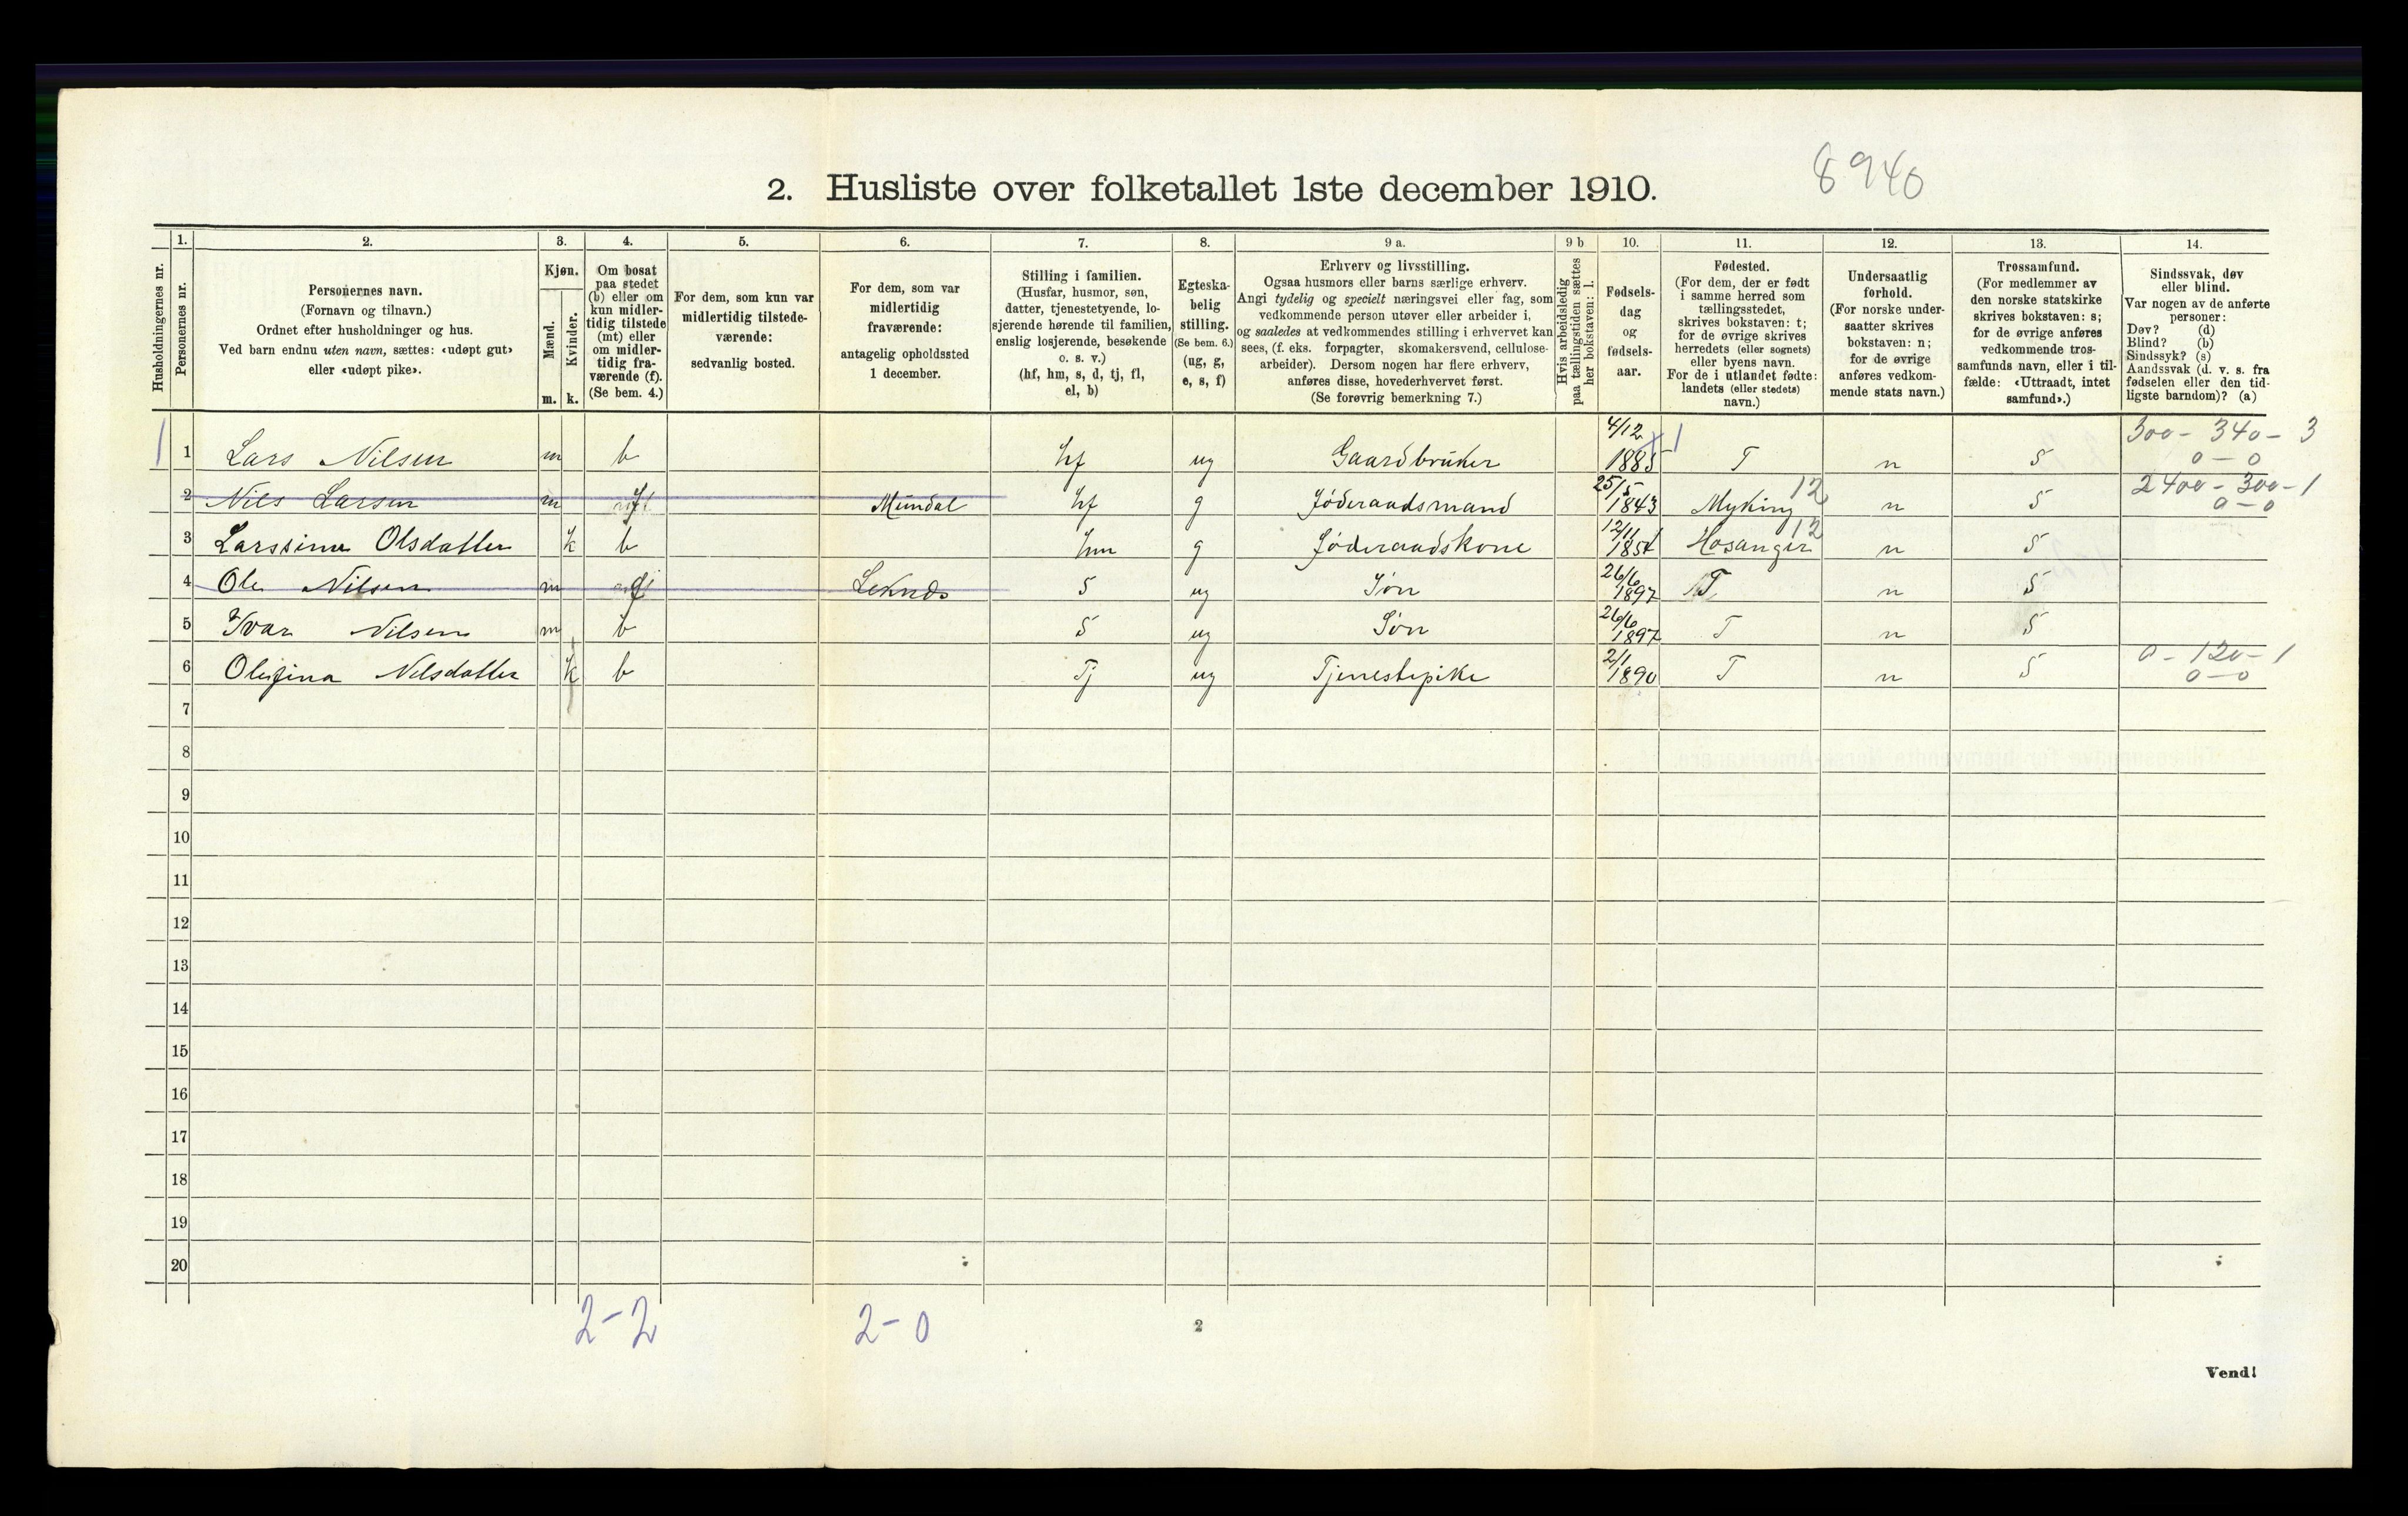 8940
2. Husliste over folketallet 1ste december 1910.
Husholdningernes nr.
1. Personernes nr.
2. Personernes navn. (Fornavn og tilnavn.) Ordnet efter husholdninger og hus. Ved barn endnu uten navn, sættes: «udøpt gut» eller «udøpt pike».
3. Kjøn. Mænd. m. Kvinder. k.
4. Om bosat paa stedet (b) eller om kun midlertidig tilstede (mt) eller om midlertidig fraværende (f). (Se bem. 4.)
5. For dem, som kun var midlertidig tilstedeværende: sedvanlig bosted.
6. For dem, som var midlertidig fraværende: antagelig opholdssted 1 december.
7. Stilling i familien. (Husfar, husmor, søn, datter, tjenestetyende, losjerende hørende til familien, enslig losjerende, besøkende o. s. v.) (hf, hm, s, d, tj, fl, el, b)
8. Egteskabelig stilling. (Se bem. 6.) (ug, g, e, s, f)
9 a. Erhverv og livsstilling. Ogsaa husmors eller barns særlige erhverv. Angi tydelig og specielt næringsvei eller fag, som vedkommende person utøver eller arbeider i, og saaledes at vedkommendes stilling i erhvervet kan sees, (f. eks. forpagter, skomakersvend, cellulosearbeider). Dersom nogen har flere erhverv, anføres disse, hovederhvervet først. (Se forøvrig bemerkning 7.)
9 b Hvis arbeidsledig paa tællingstiden sættes her bokstaven: l.
10. Fødselsdag og fødselsaar.
11. Fødested. (For dem, der er født i samme herred som tællingsstedet, skrives bokstaven: t; for de øvrige skrives herredets (eller sognets) eller byens navn. For de i utlandet fødte: landets (eller stedets) navn.)
12. Undersaatlig forhold. (For norske undersaatter skrives bokstaven: n; for de øvrige anføres vedkommende stats navn.)
13. Trossamfund. (For medlemmer av den norske statskirke skrives bokstaven: s; for de øvrige anføres vedkommende trossamfunds navn, eller i tilfælde: «Uttraadt, intet samfund».)
14. Sindssvak, døv eller blind. Var nogen av de anførte personer: Døv? (d) Blind? (b) Sindssyk? (s) Aandssvak (d. v. s. fra fødselen eller den tidligste barndom)? (a)
1 1 Lars Nilsen m b hf ug Gaardbruker 4/12 1885 1 T n S 300 - 340 - 3 0 - 0
2 Nils Larsen m f Mundal hf g Føderaadsmand 25/5 1843 Myking 12 n S 2400 - 300 - 1 0 - 0
3 Larssine Olsdatter k b hm g Føderaadskone 12/11 1854 Hosanger 12 n S
4 Ole Nilsen m f Leknæs S ug Søn 26/6 1897 T n S
5 Ivar Nilsen m b S ug Søn 26/6 1897 T n S
6 Olefina Nilsdatter k b Tj ug Tjenestepike 2/1 1890 T n S 0 - 120 - 1 0 - 0
7
8
9
10
11
12
13
14
15
16
17
18
19
20
2 - 2 2 - 0 2
Vend!